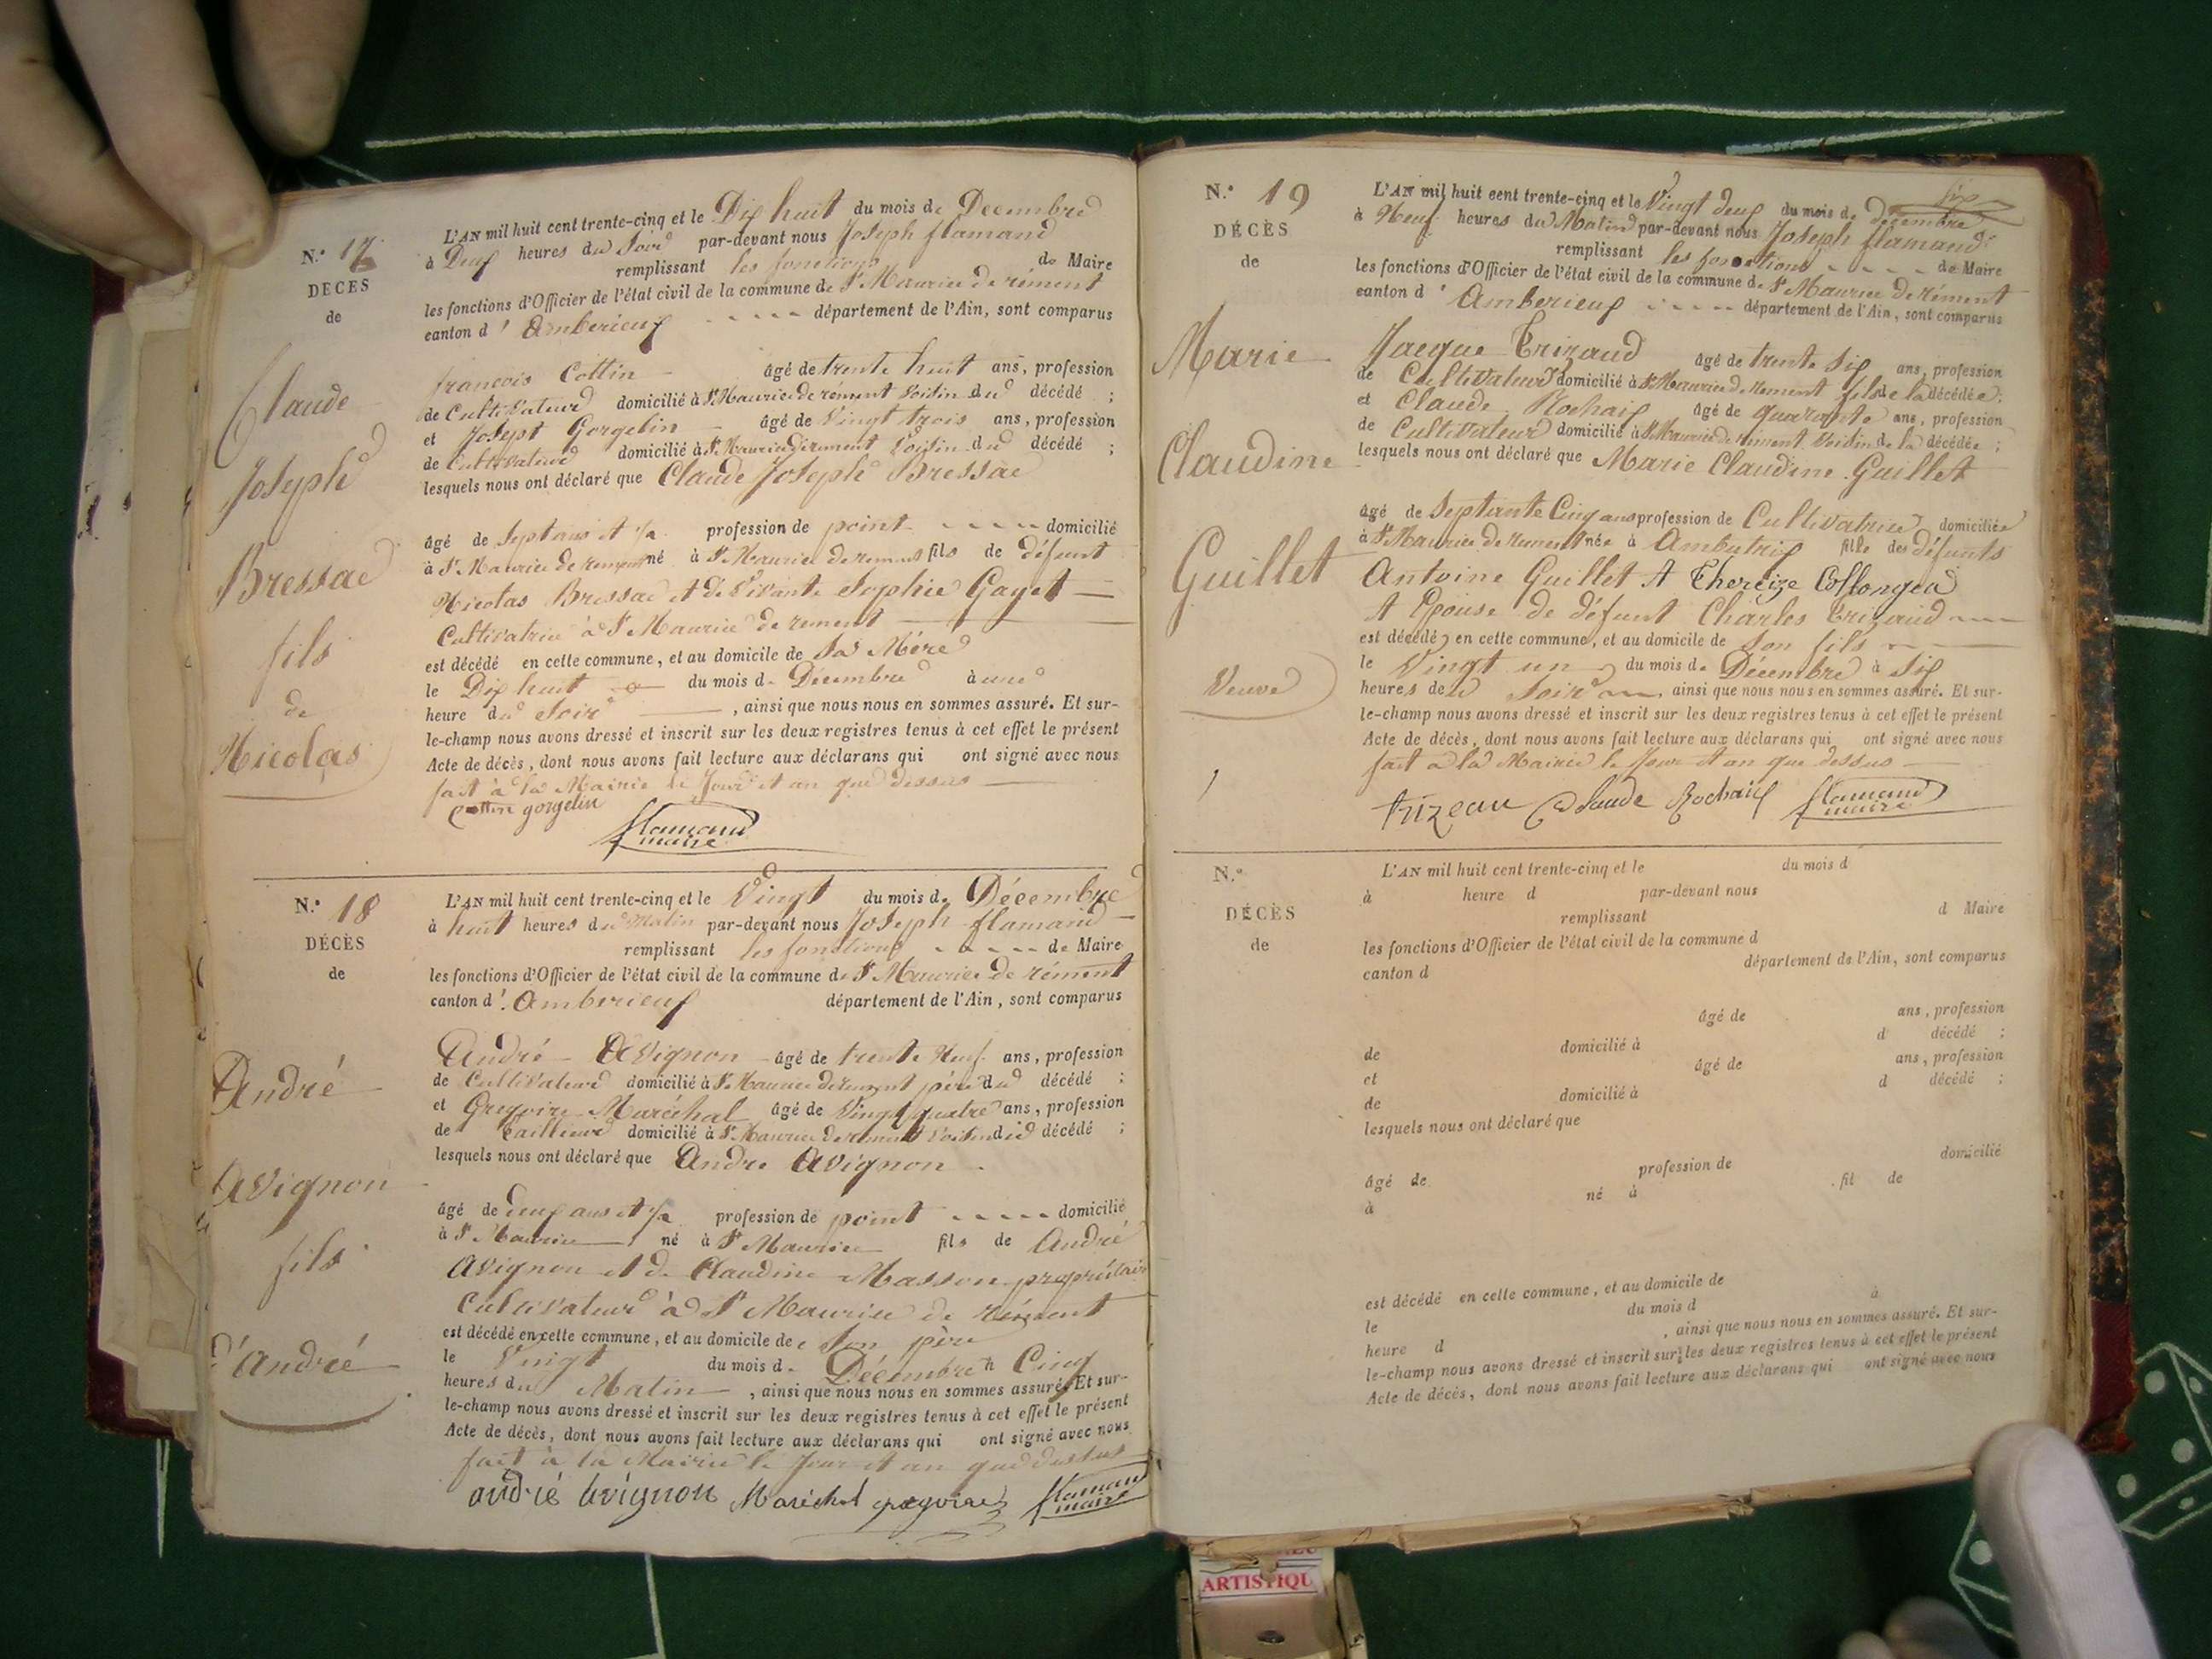 N.° 17
DÉCÈS
de
Claude
Joseph
Bressac
fils
de
Nicolas
L'AN mil huit cent trente-cinq et le Dix huit du mois de Decembre
à Deux heures du Soir par-devant nous Joseph flamand
remplissant les fonctions de Maire
les fonctions d'Officier de l'état civil de la commune de St Maurice de rément
canton d' Amberieux - - - - département de l'Ain, sont comparus
francois Cottin âgé de trente huit ans, profession
de Cultivateur domicilié à St Maurice de rément Voisin du décédé ;
et Josept Gorgelin âgé de Vingt trois ans, profession
de Cultivateur domicilié à St Maurice de rement Voisin du décédé ;
lesquels nous ont déclaré que Claude Joseph Bressac
âgé de Sept ans et 1/2 profession de point - - - - domicilié
à St Maurice de rement né à St Maurice de rement fils de défunt
Nicolas Bressac et de Vivante Sophie Gayet
Cultivatrice à St Maurice de rement
est décédé en cette commune, et au domicile de Sa Mére
le Dix huit du mois de Décembre à une
heure du Soir , ainsi que nous nous en sommes assuré. Et sur-
le-champ nous avons dressé et inscrit sur les deux registres tenus à cet effet le présent
Acte de décès, dont nous avons fait lecture aux déclarans qui ont signé avec nous
fait à la Mairie le Jour et an que dessus
Cottin gorgelin
flamand
maire
N.° 18
DÉCÈS
de
André
Avignon
fils
d'André
L'AN mil huit cent trente-cinq et le Vingt du mois de Décembre
à huit heures du Matin par-devant nous Joseph flamand
remplissant les fonctions - - - - de Maire
les fonctions d'Officier de l'état civil de la commune de St Maurice de rément
canton d' Amberieux département de l'Ain, sont comparus
André Avignon âgé de trente Neuf ans, profession
de Cultivateur domicilié à St Maurice de rement père du décédé ;
et Gregoire Maréchal âgé de Vingt quatre ans, profession
de tailleur domicilié à St Maurice de rement Voisin du décédé ;
lesquels nous ont déclaré que Andre Avignon
âgé de deux ans et 1/2 profession de point - - - - domicilié
à St Maurice né à St Maurice fils de André
Avignon et de Claudine Masson propriétaire
Cultivateur à St Maurice de rément
est décédé en cette commune, et au domicile de Son père
le Vingt du mois de Décembre à Cinq
heures du Matin , ainsi que nous nous en sommes assuré. Et sur-
le-champ nous avons dressé et inscrit sur les deux registres tenus à cet effet le présent
Acte de décès, dont nous avons fait lecture aux déclarans qui ont signé avec nous
fait à la Mairie le Jour et an que dessus
andré avignon Maréchal gregoire flamand
maire
N.° 19
DÉCÈS
de
Marie
Claudine
Guillet
Veuve
L'AN mil huit cent trente-cinq et le Vingt deux du mois de décembre
à Neuf heures du Matin par-devant nous Joseph flamand
remplissant les fonctions - - - - de Maire
les fonctions d'Officier de l'état civil de la commune de St Maurice de rément
canton d' Amberieux - - - - département de l'Ain, sont comparus
Jacque Trizaud âgé de trente Six ans, profession
de Cultivateur domicilié à St Maurice de rement fils de la décédée ;
et Claude Rochaix âgé de quarante ans, profession
de Cultivateur domicilié à St Maurice de rement Voisin de la décédée ;
lesquels nous ont déclaré que Marie Claudine Guillet
âgé de Septante Cinq ans profession de Cultivatrice domiciliée
à St Maurice de rement née à Ambutrix fille des défunts
Antoine Guillet et Thereize Collonges
et Epouse de défunt Charles Trizaud
est décédé en cette commune, et au domicile de Son fils
le Vingt un du mois de Décembre à Six
heures du Soir ainsi que nous nous en sommes assuré. Et sur-
le-champ nous avons dressé et inscrit sur les deux registres tenus à cet effet le présent
Acte de décès, dont nous avons fait lecture aux déclarans qui ont signé avec nous
fait à la Mairie le Jour et an que dessus
trizeau Claude Rochaix flamand
maire
N.°
DÉCÈS
de
L'AN mil huit cent trente-cinq et le du mois d
à heure d par-devant nous
remplissant d Maire
les fonctions d'Officier de l'état civil de la commune d
canton d département de l'Ain, sont comparus
âgé de ans, profession
de domicilié à d décédé ;
et âgé de ans, profession
de domicilié à d décédé ;
lesquels nous ont déclaré que
âgé de profession de domicilié
à né à fil de
est décédé en cette commune, et au domicile de
le du mois d à
heure d , ainsi que nous nous en sommes assuré. Et sur-
le-champ nous avons dressé et inscrit sur les deux registres tenus à cet effet le présent
Acte de décès, dont nous avons fait lecture aux déclarans qui ont signé avec nous
ARTISTIQU